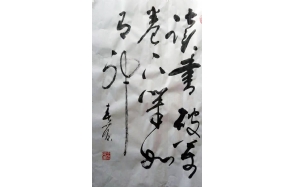 读书破万
卷下笔如
有神